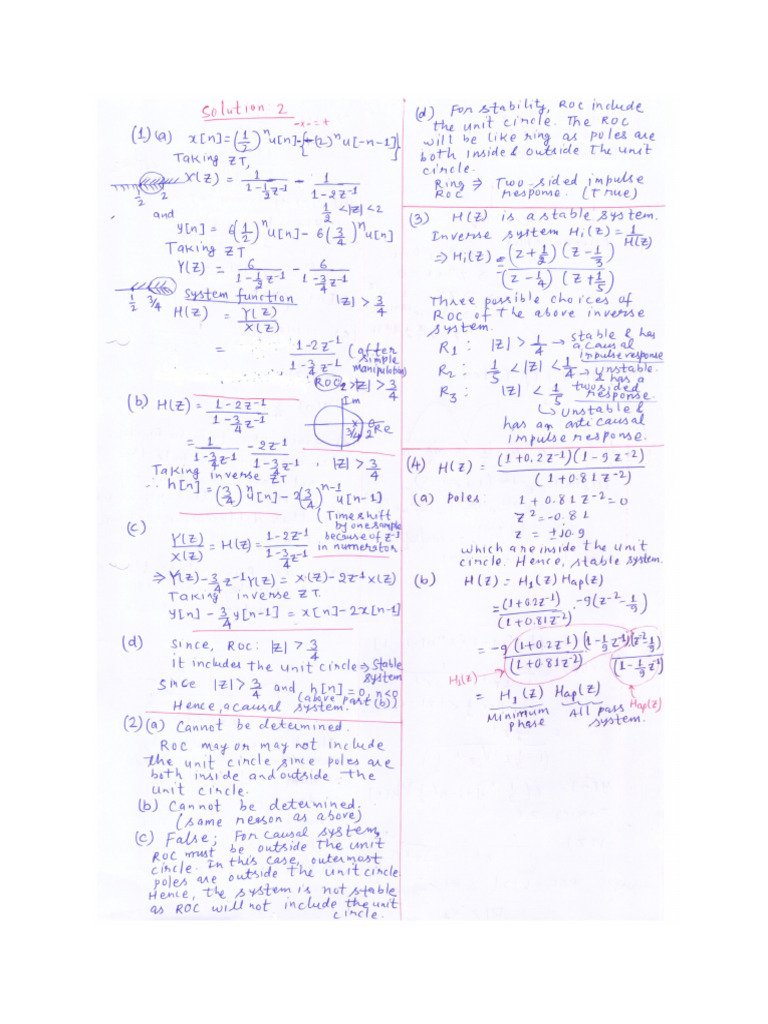 Solution: 2
-x- = +
(1) (a) x[n] = (1/2)^n u[n] - {-(2)^n u[-n-1]}
Taking ZT,
X(z) = 1/(1-1/2 z^-1) - 1/(1-2z^-1)
1/2 2
1/2 < |z| < 2
and
y[n] = 6(1/2)^n u[n] - 6(3/4)^n u[n]
Taking ZT
Y(z) = 6/(1-1/2 z^-1) - 6/(1-3/4 z^-1)
1/2 3/4
System function |z| > 3/4
H(z) = Y(z)/X(z)
= (1-2z^-1)/(1-3/4 z^-1) (after
simple
manipulation)
|z| > 3/4
(b) H(z) = (1-2z^-1)/(1-3/4 z^-1)
Im
Re
3/4 2
= 1/(1-3/4 z^-1) - 2z^-1/(1-3/4 z^-1), |z| > 3/4
Taking inverse ZT.
∴ h[n] = (3/4)^n u[n] - 2(3/4)^(n-1) u[n-1]
(Time shift
by one sample
because of z^-1
in numerator
(c) Y(z)/X(z) = H(z) = (1-2z^-1)/(1-3/4 z^-1)
⇒ Y(z) - 3/4 z^-1 Y(z) = X(z) - 2z^-1 X(z)
Taking inverse ZT.
y[n] - 3/4 y[n-1] = x[n] - 2x[n-1]
(d) Since, ROC: |z| > 3/4
it includes the unit circle ⇒ stable
system
Since |z| > 3/4 and h[n] = 0, n<0
(above part (b))
Hence, a causal system.
(2) (a) Cannot be determined.
ROC may or may not include
the unit circle since poles are
both inside and outside the
unit circle.
(b) Cannot be determined.
(same reason as above)
(c) False; For causal system,
ROC must be outside the unit
circle. In this case, outermost
poles are outside the unit circle
Hence, the system is not stable
as ROC will not include the unit
circle.
(d) For stability, ROC include
the unit circle. The ROC
will be like ring as poles are
both inside & outside the unit
circle.
Ring ROC ⇒ Two-sided impulse
response. (True)
(3) H(z) is a stable system.
Inverse system Hi(z) = 1/H(z)
⇒ Hi(z) = (z+1/2)(z-1/3)/(z-1/4)(z+1/5)
Three possible choices of
ROC of the above inverse
system.
R1: |z| > 1/4 → stable & has
a causal
impulse response
R2: 1/5 < |z| < 1/4 → Unstable
& has a
two sided
response.
R3: |z| < 1/5
↳ Unstable &
has an anti causal
impulse response.
(4) H(z) = (1+0.2z^-1)(1-9z^-2)/(1+0.81z^-2)
(a) Poles: 1+0.81z^-2=0
z^2=-0.81
z = ±j0.9
which are inside the unit
circle. Hence, stable system.
(b) H(z) = H1(z) Hap(z)
= (1+0.2z^-1)/(1+0.81z^-2) . -9(z^-2 - 1/9)
= -9 (1+0.2z^-1)(1-1/9 z^-2)(z^-2 - 1/9)/(1+0.81z^-2)(1-1/9 z^-2)
H1(z)
= H1(z) Hap(z)
Hap(z)
Minimum phase All pass system.